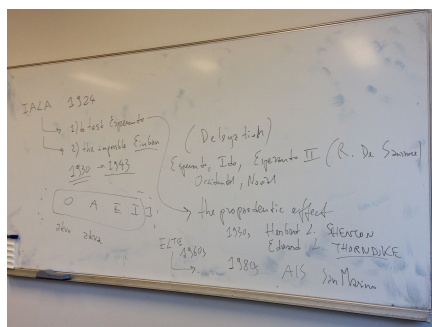 IALA 1924
1) to test Esperanto
2) the impossible Einbau
1930 → 1943
(Delegation)
Esperanto, Ido, Esperanto II (R. De Saussure)
Occidental, Novial
O A E I
akva akva
the propaedeutic effect
1930s Herbert L. SHENTON
Edward L. THORNDIKE
ELTE
1960s
1980s AIS San Marino